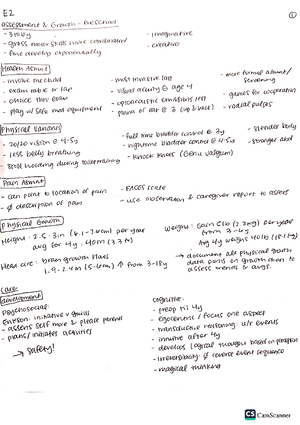 E2
Assessment & Growth - Preschool
- 3 to 6y
- gross motor skills more coordinated
- fine develop exponentially
- imaginative
- creative
Health Assmt
- involve the child
- exam table or lap
- choice then exam
- play w/ safe med equipment
- most invasive last
- visual acuity @ age 4
- otoacoustic emissions test
- more formal
screening
- games for cooperation
- radial pulses
Physical Variations
- 20/20 vision @ 4-5y
- less belly breathing
- stool holding during toilet training
- full time bladder control @ 3y
- nighttime bladder control @ 4-5y
- knock knees (Genu valgum)
- slender body
- stronger abd
Pain Assmt
- can point to location of pain
- Ø description of pain
- FACES scale
- use observation & caregiver report to assess
Physical Growth
Height: 2.5-3in (6.1-7.6cm) per year
avg for 4y: 40in (3.3ft)
Head circ: brain growth slows
1.9-2.4in (5-6cm) ↑ from 3-18y
Weight: gain 5lb (2.3kg) per year
from 3-6y
Avg 4y weighs 40lb (18.1kg)
→ document all physical growth
data points on growth chart to
assess trends & avgs.
Care:
Development
Psychosocial:
Erikson: initiative v guilt
- assess self more & please parents
- plans/initiates activities
→ Safety!
cognitive:
- preop til 7y
- egocentric / focus one aspect
- transductive reasoning: w/r events
- intuitive after 4y
- develops logical thought based on perception
- irreversibility: Ø reverse event sequence
- magical thinking
CS CamScanner